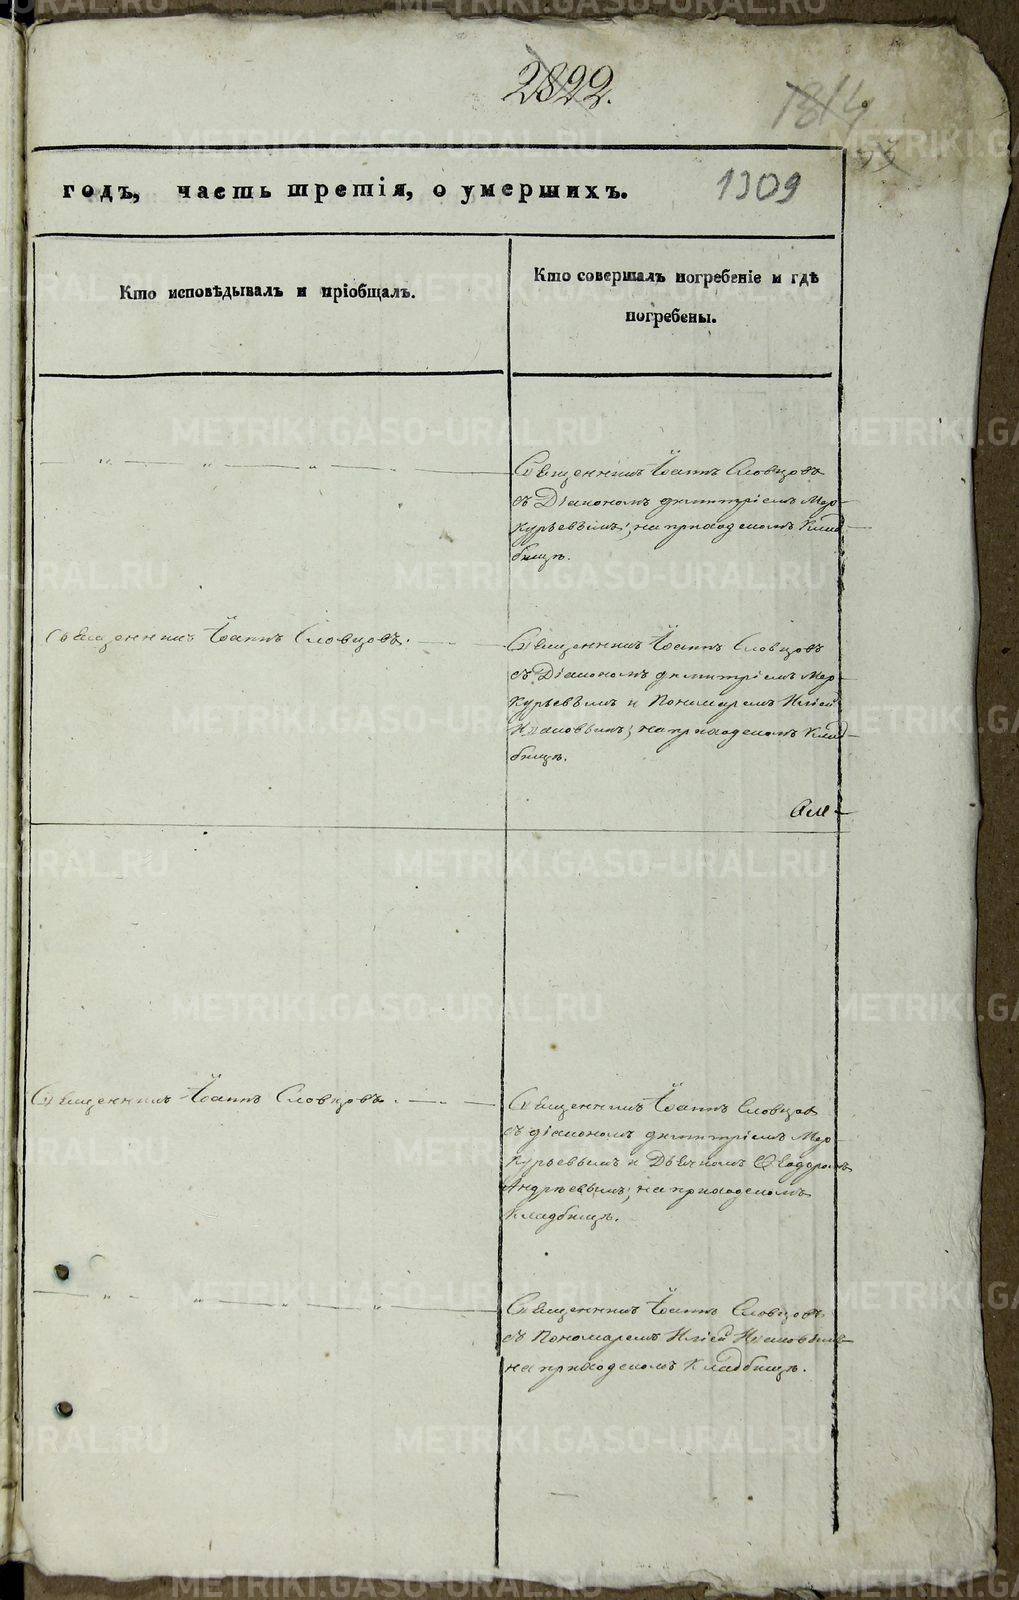 2822.
1314
годъ, часть третія, о умершихъ.
1309
Кто исповѣдывалъ и пріобщалъ.
Кто совершалъ погребеніе и гдѣ
погребены.
Священникъ Іоаннъ Словцовъ
съ Діакономъ Димитріемъ Мер-
курьевымъ; на приходскомъ клад-
бищѣ.
Священникъ Іоаннъ Словцовъ.
Священникъ Іоаннъ Словцовъ
съ Діакономъ Димитріемъ Мер-
курьевымъ и Пономаремъ Иліей
на приходскомъ клад-
бищѣ.
Священникъ Іоаннъ Словцовъ.
Священникъ Іоаннъ Словцовъ
съ діакономъ Димитріемъ Мер-
курьевымъ и Дьячкомъ Ѳеодоромъ
Андреевымъ; на приходскомъ
кладбищѣ.
Священникъ Іоаннъ Словцовъ
съ Пономаремъ Иліей
на приходскомъ кладбищѣ.
METRIKI.GASO-URAL.RU